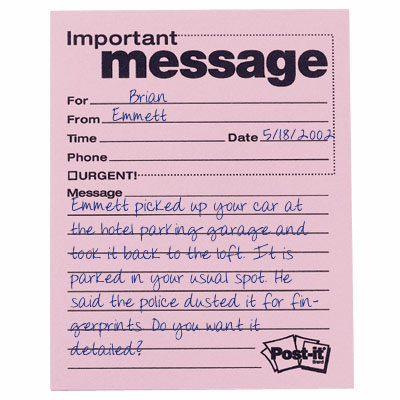 Important
message
For Brian
From Emmett
Time Date 5/18/2002
Phone
URGENT!
Message
Emmett picked up your car at
the hotel parking garage and
took it back to the loft. It is
parked in your usual spot. He
said the police dusted it for fin-
gerprints. Do you want it
detailed?
Post-it®
Brand